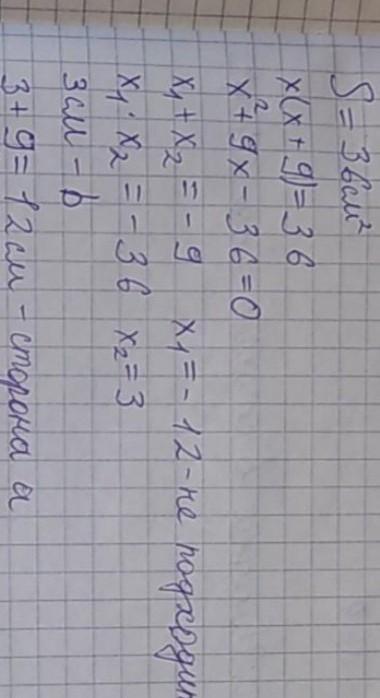 S = 36 см²
x(x+9)=36
x²+9x-36=0
x₁+x₂=-9 x₁=-12 - не подходит
x₁·x₂=-36 x₂=3
3см - b
3+9=12см - сторона a